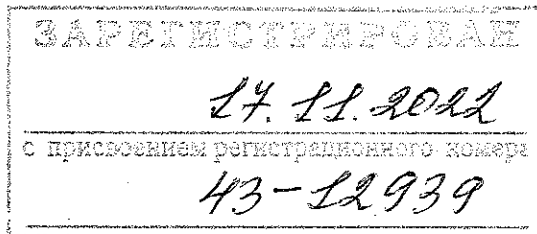 ЗАРЕГИСТРИРОВАН
17.11.2022
с присвоением регистрационного номера
43-12939